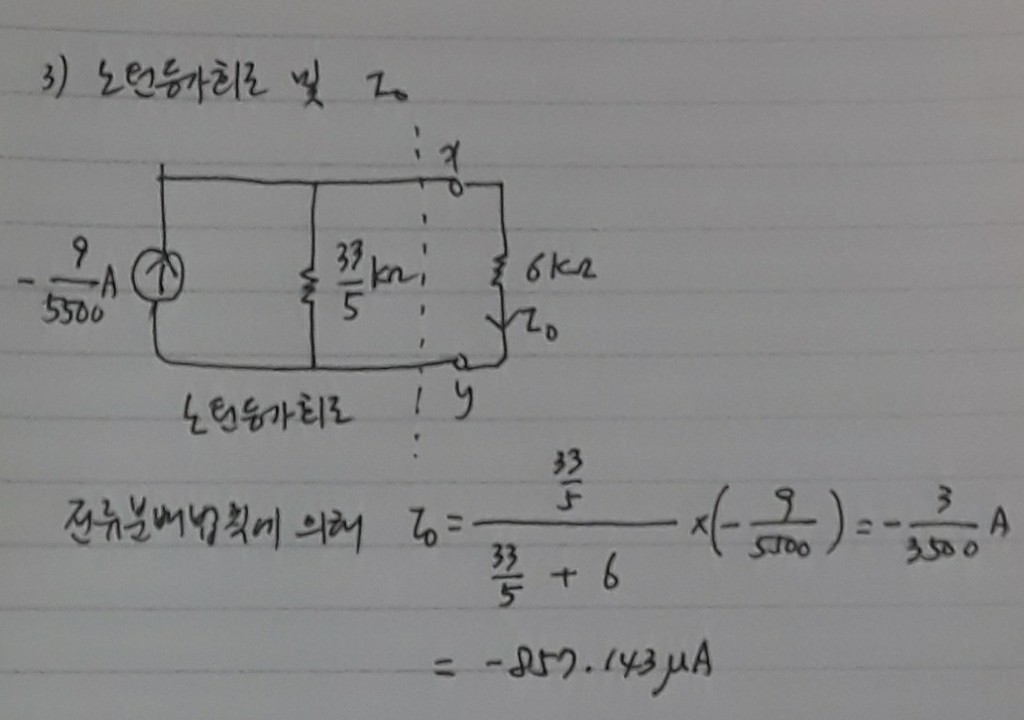 3) 노턴등가회로 및 I₀
x
- 9/5500 A
33/5 kΩ
6kΩ
I₀
y
노턴등가회로
전류분배법칙에 의해 I₀ = (33/5)/(33/5 + 6) × (- 9/5500) = - 3/3500 A
= -857.143μA